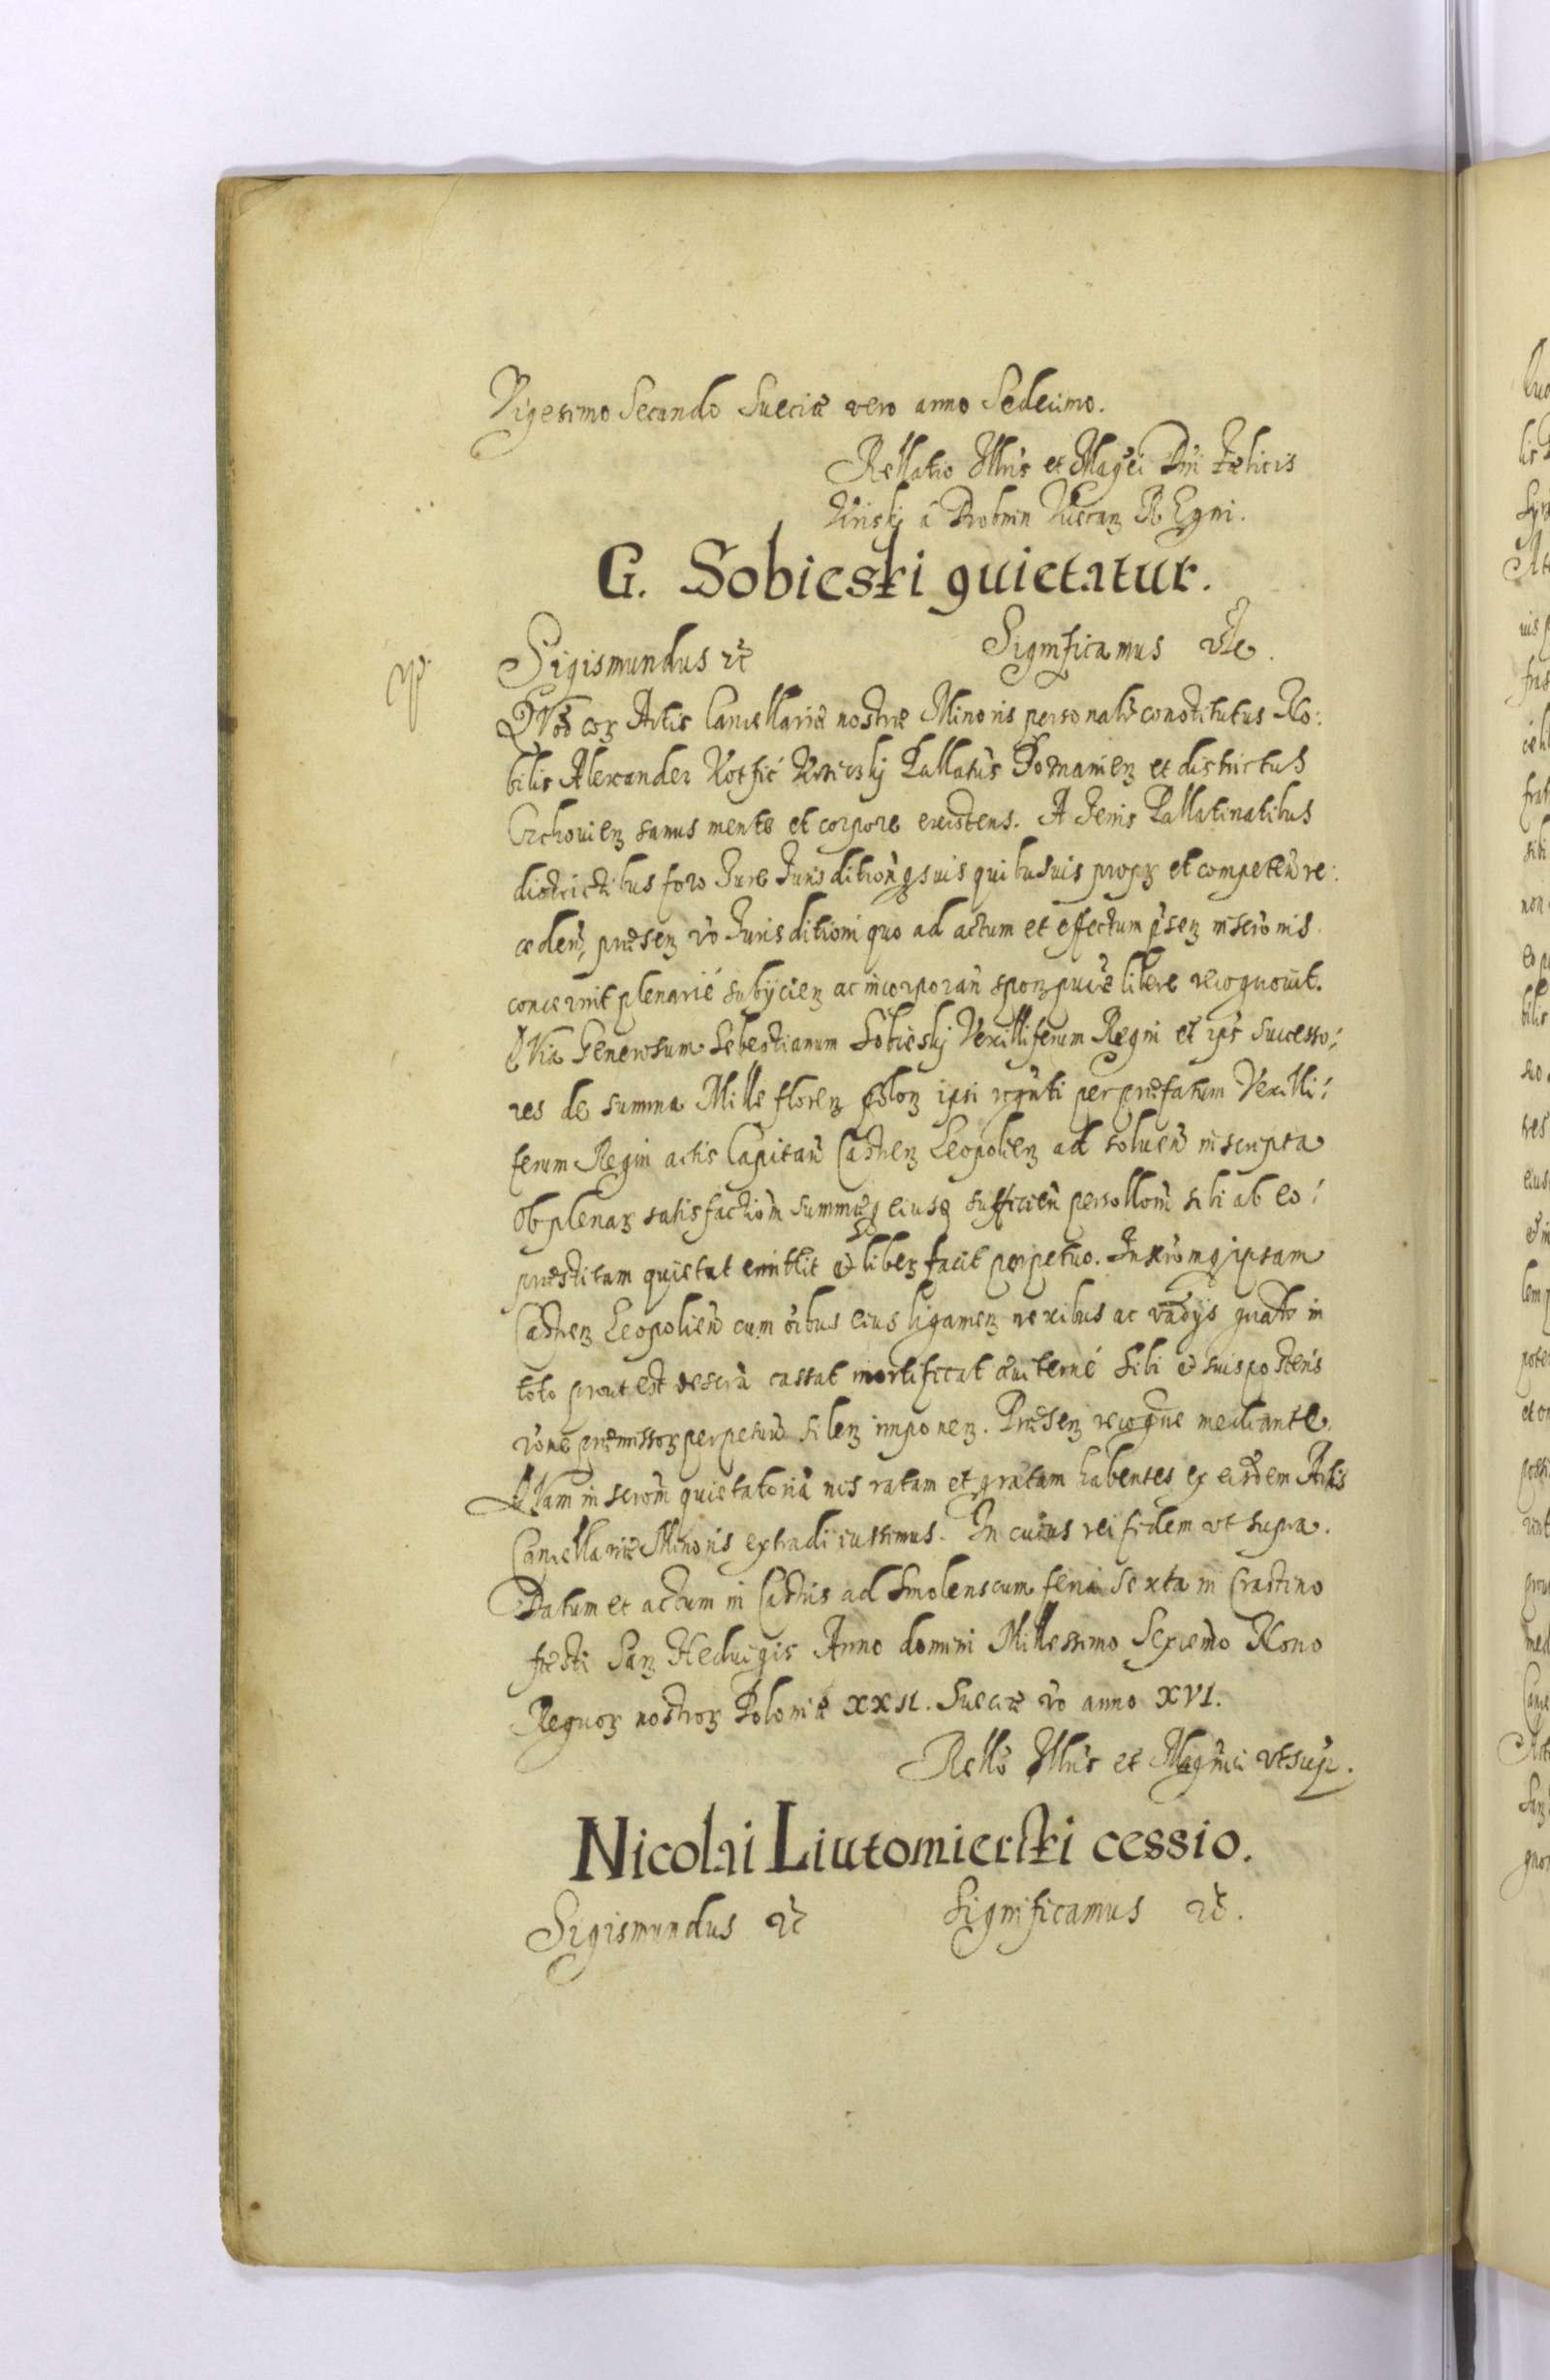 Vigesimo Secundo Sueciæ vero anno Sedecimo.
Rellatio Illris et Magci Dni Fælicis
Kriski à Drobnin Vicecanz REgni.
G. Sobieski quietatur.
Sigismundus etc Significamus etc.
QVod coz Actis Cancellariæ nostræ Minoris personalr constitutus No:
bilis Alexander Pallatus Poznanienz et districtus
sanus mente et corpore existens. A Terris Pallatinatibus
districtibus foro Jure Jurisditionq suis quibusuis propz et competen re:
cæden, præsenz vo Jurisditioni quo ad actum et effectum psenz inscronis
concernit plenarié subijcienz ac incorporan sponz puréz libere recognouit.
QVia Generosum Sebestianum Sobieskj Vexilliferum Regni et ips successo:
res de summa Mille florenz polonz ipsi rgnti per præfatum Vexilli:
ferum Regni actis Capitan Castrenz Leopolienz ad soluen inscripta
Ob plenaz satisfactiom summæq eiusq sufficien persollom sibi ab eo:
præstitam quietat emittit et liberz facit perpetuo. Inscromq ipsam
Castrenz Leopolien cum oibus eius ligamenz nexibus ac vadijs in
toto prout est descra cassat mortificat æuiterné sibi et suis posteris
rone præmissorz perpetuu silenz imponenz. Præsenz mediante.
QVam inscrom quietatoria nos ratam et gratam habentes ex eisdem Actis
Cancellariæ Minoris extradi iussimus. In cuius rei fidem vt supra.
Datum et actum in Castris ad Smolenscum feria Sexta in Crastino
festi Sanz Heduigis Anno domini Millessimo Sexcenmo Nono
Regnoz nostroz Poloniæ XXII. Sueciæ vo anno XVI.
Rello Illris et Magnici vt supz.
Nicolai Liutomierski cessio.
Sigismundus etc Significamus etc.